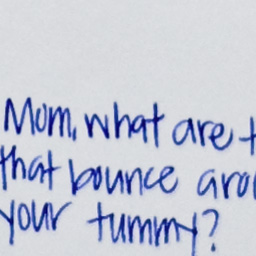 Mom, what are t
that bounce aro
your tummy?